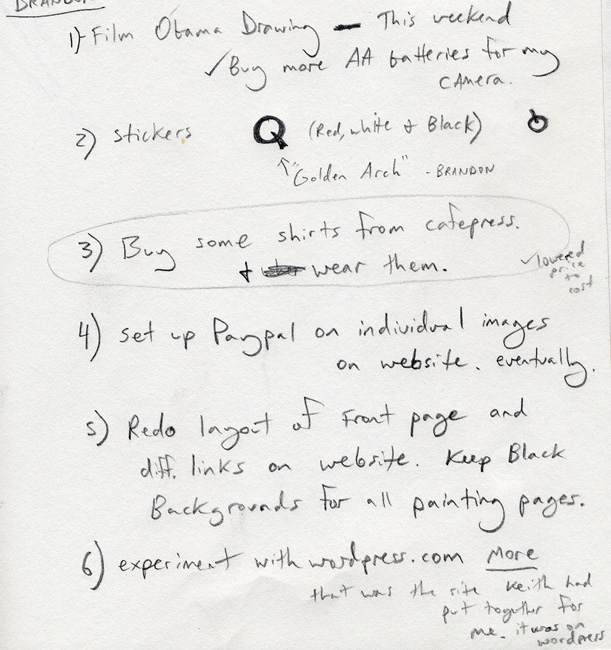 BRANDON
1) Film Obama Drawing — This weekend
✓ Buy more AA batteries for my
camera.
2) stickers Q (Red, white & Black)
↑ "Golden Arch" - BRANDON
3) Buy some shirts from cafepress.
& wear them.
✓ lowered
price
to
cost
4) set up Paypal on individual images
on website. eventually.
5) Redo layout of Front page and
diff. links on website. Keep Black
Backgrounds for all painting pages.
6) experiment with wordpress.com More
that was the site Keith had
put together for
me. it was on
wordpress